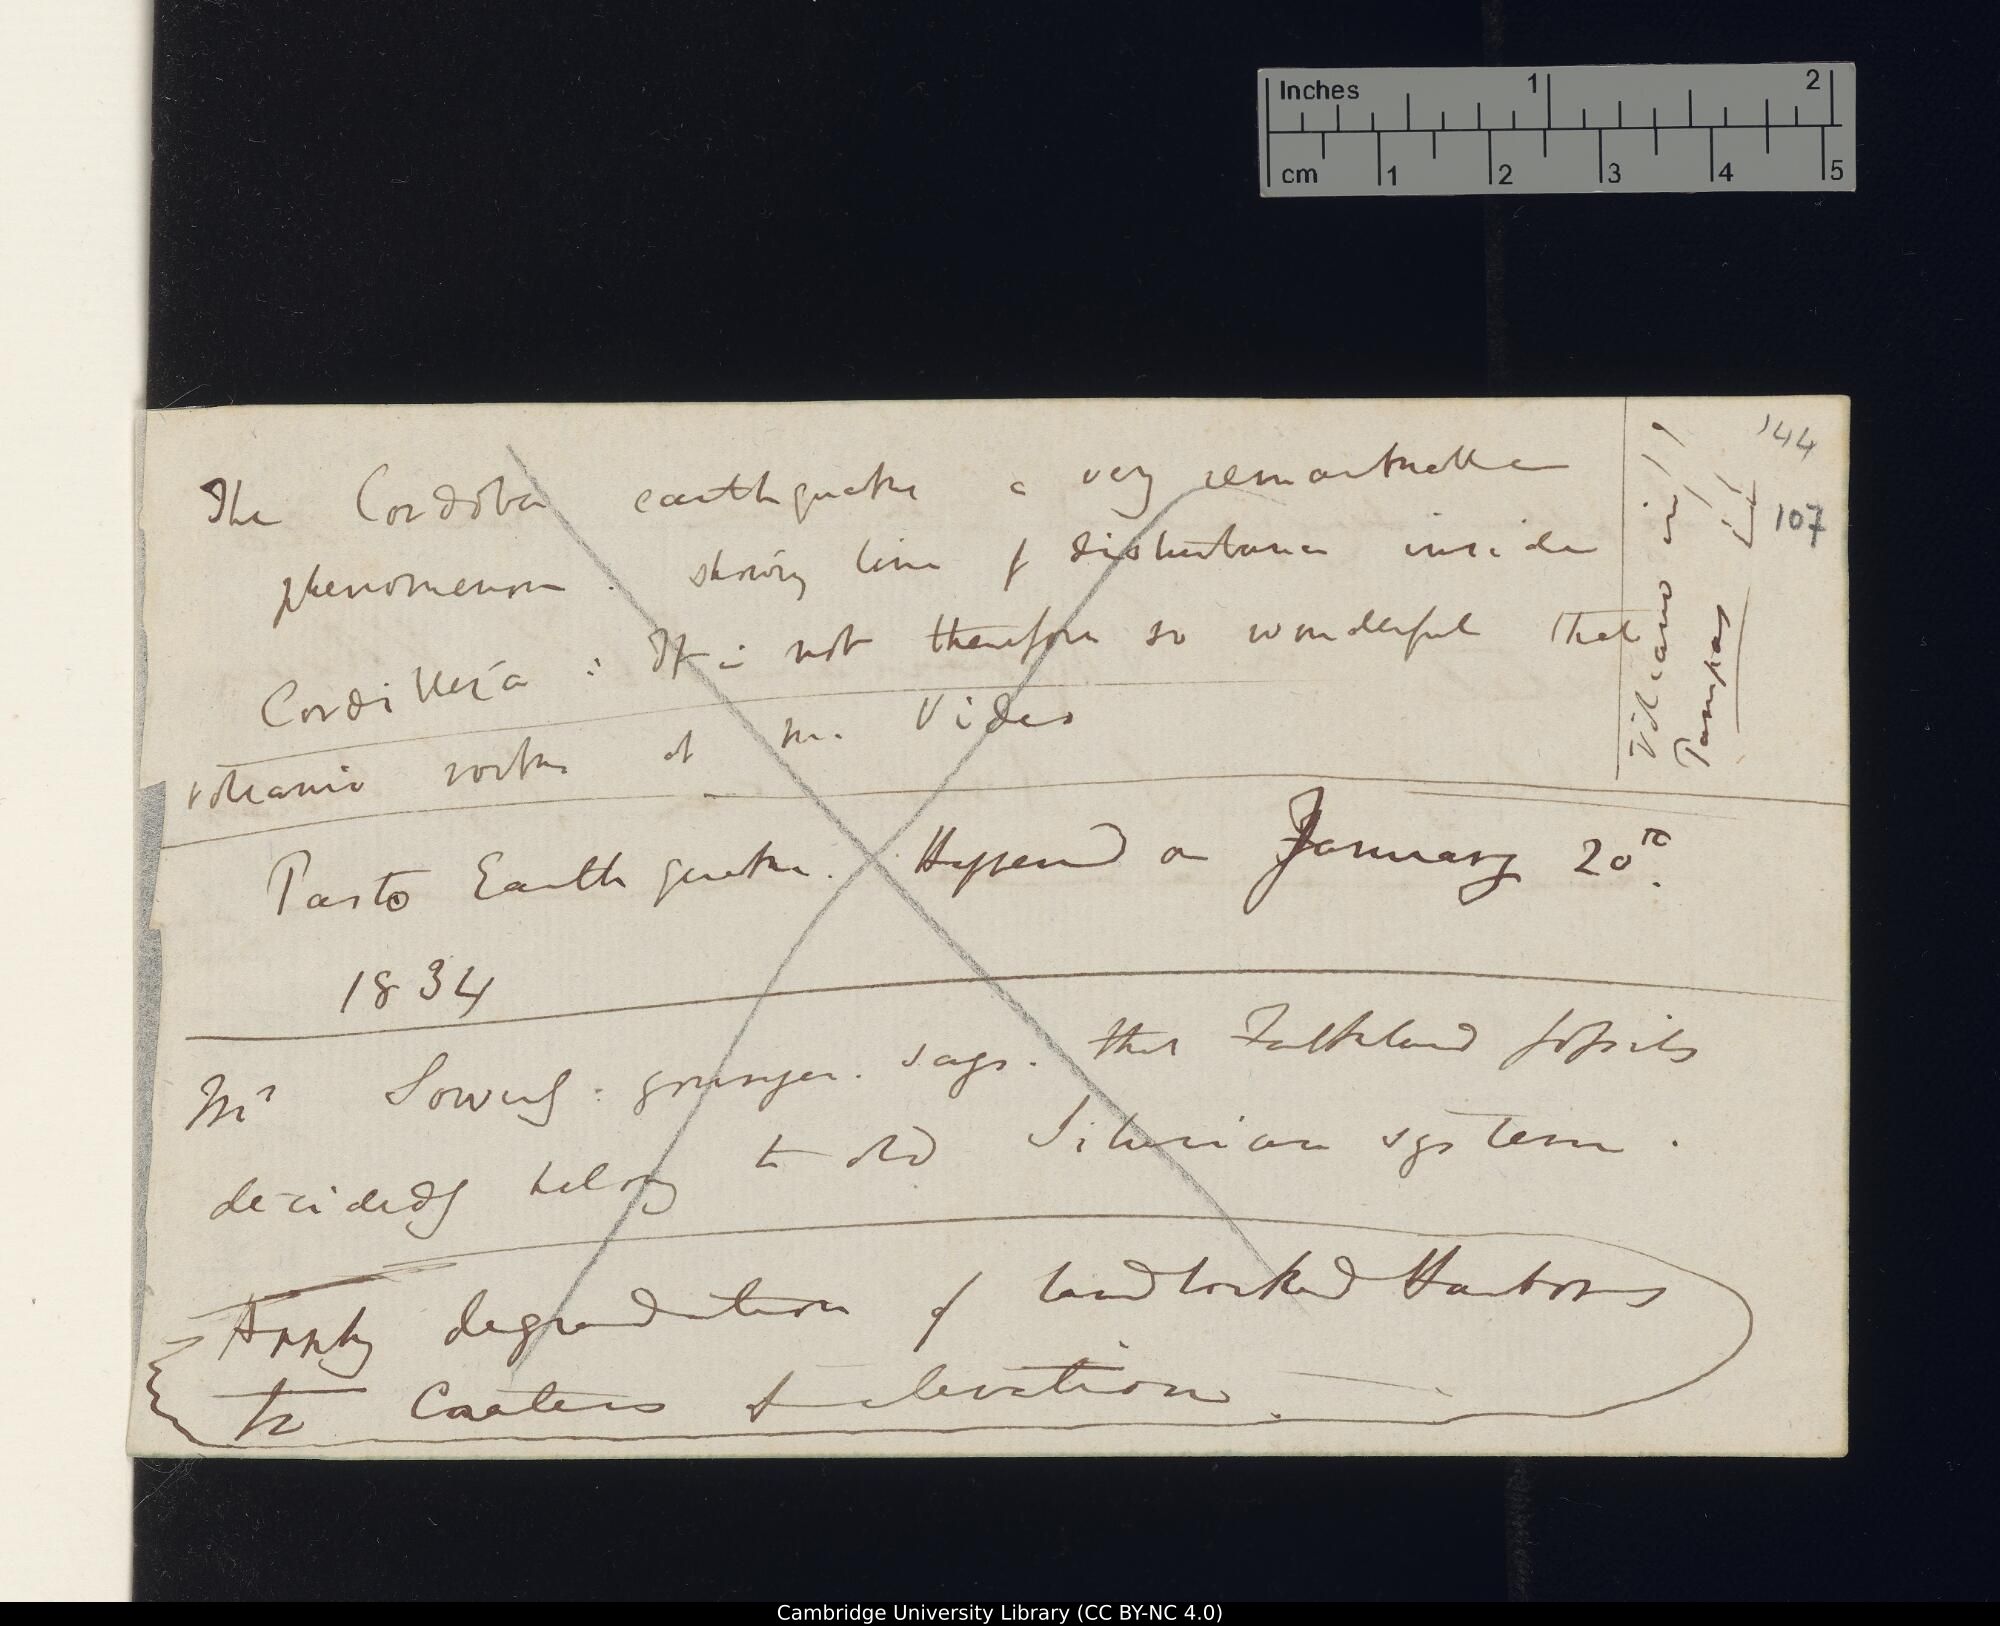 Inches 1 2
cm 1 2 3 4 5
144
107
The Cordoba earthquake a very remarkable
phenomenon. showing line of disturbance inside
Cordillera: It is not therefore so wonderful that
volcanic rocks at M. Video
Volcano in
Pampas
Pasto Earthquake. Happened on January 20th.
1834
Mr Sowerby: younger. says. that Falkland fossils
decidedly belong to old Silurian system.
Apply degradation of landlocked Harbors
to Craters of elevation.
Cambridge University Library (CC BY-NC 4.0)